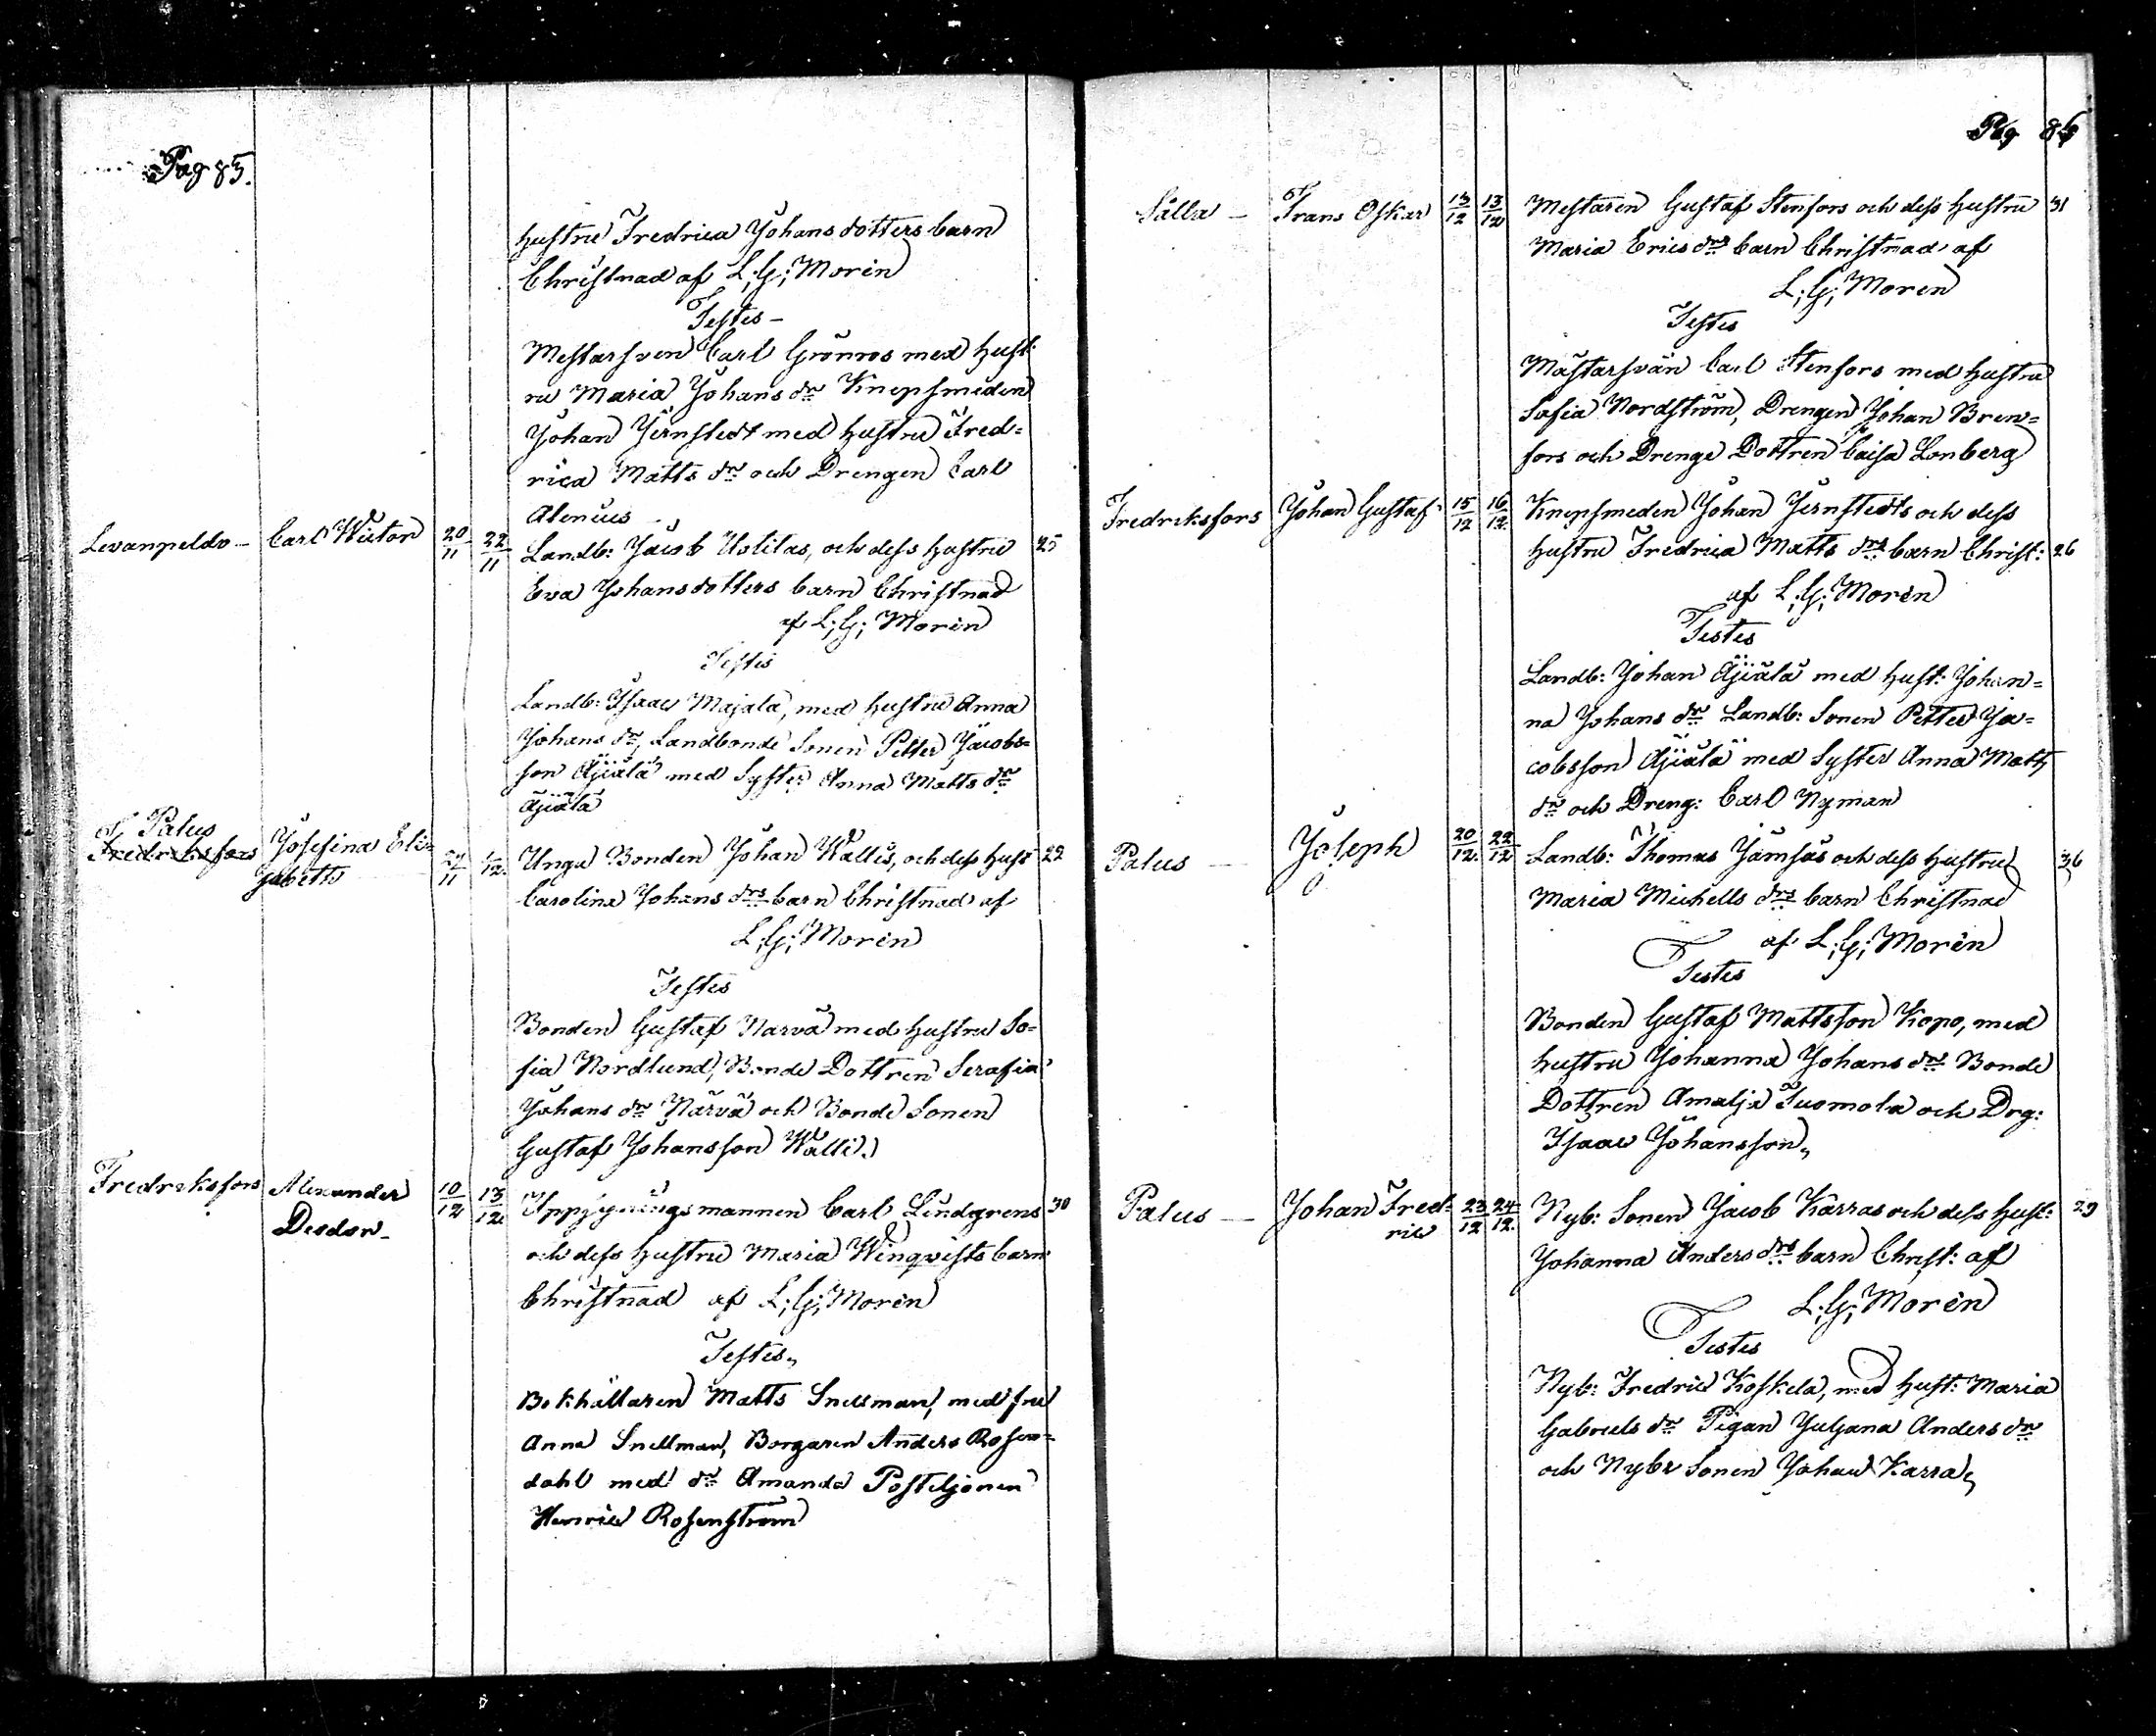 Pag 85.
hustru Fredrica Johansdotters barn
Christnad af L; G; Morén
Testes –
Mestarsven Carl Grönros med hust-
ru Maria Johans dr Knepsmeden
Johan Jernstedt med hustru Fred=
rica Matts dr och Drengen Carl
Alenius
Levanpeldo – Carl Wictor 20/11 22/11 Landb: Jacob Uslitas, och dess hustru 25
Eva Johansdotters barn Christnad
af L; G; Morén
Testes
Landb: Isaac Majala, med hustru Anna
Johans dr, Landbonde Sonen Petter Jacobs=
son Äjiälä med Syster Anna Matts dr
Äjiälä
Palus
Fredriksfors Josefina Eli= 11 12 Unga Bonden Johan Wallis, och dess hust 22
sabetts Carolina Johans drs barn Christnad af
L; G; Morén
Testes
Bonden Gustaf Narvä med hustru So=
fia Nordlund, Bonde Dottren Serafia
Johans dr Närvä och Bonde Sonen
Gustaf Johansson Walli
Fredriksfors Alexander 10/12 13/12 Uppsyningsmannen Carl Lindgrens 30
Deodor – och dess hustru Maria Winqvists barn
Christnad af L; G; Morén
Testes
Bokhållaren Matts Snellman, med fru
Anna Snellman, Borgaren Anders Rosen=
dahl med dr Amanda Postiljonen
Henric Rosenström
Pag 86
Sälla – Frans Oskar 13/12 13/12 Mestaren Gustaf Stenfors och dess hustru 31
Maria Erics drs barn Christnad af
L; G; Morén
Testes
Mästarsvän Carl Stenfors med hustru
Sofia Nordström, Drengen Johan Bren=
fors och Drenge Dottren Caisa Lonberg
Fredriksfors Johan Gustaf 15/12 16/12 Knepsmeden Johan Jernstedts och dess
hustru Fredrica Matts drs barn Christ: 26
af L; G; Morén
Testes
Landb: Johan Äjiälä med hust: Johan=
na Johans dr Landb: Sonen Petter Ja=
cobsson Äjiälä med Syster Anna Matts
dr och Dreng: Carl Nyman
Palus – Joseph 20/12 22/12 Landb: Thomas Jämsäs och dess hustru 36
Maria Michells drs barn Christnad
af L; G; Morén
Testes
Bonden Gustaf Mattsson Kopo, med
hustru Johanna Johans dr Bonde
Dottren Amalja Tuomola och Drg:
Isaac Johansson
Palus – Johan Fred= 23/12 24/12 Nyb: Sonen Jacob Karras och dess hust: 29
ric Johanna Anders drs barn Christ: af
L; G; Morén
Testes
Nyb: Fredric Koskela, med hust: Maria
Gabriels dr Pigan Juljana Anders dr
och Nybr Sonen Johan Karra